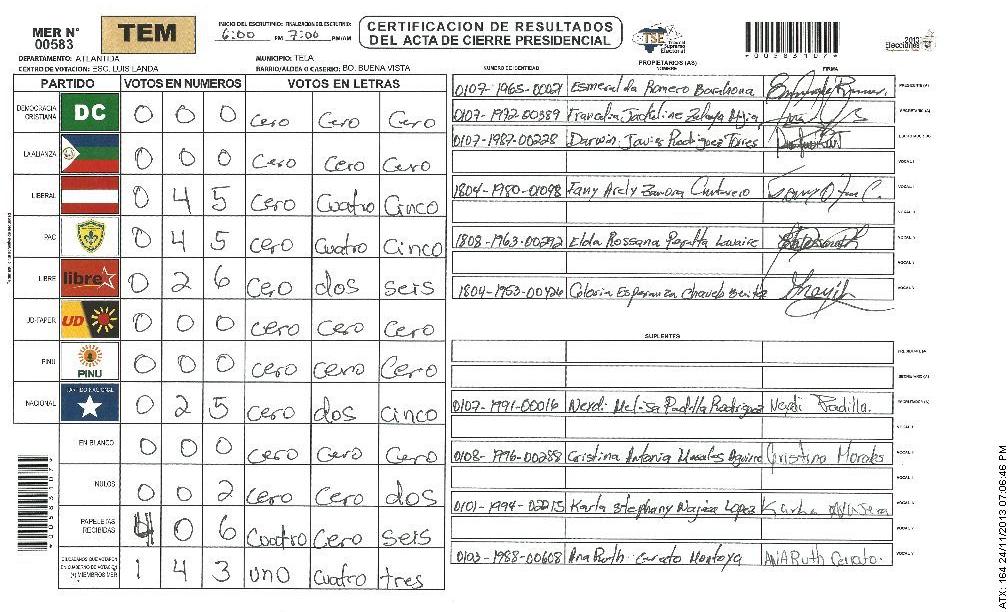 MER N° 00583
TEM
INICIO DEL ESCRUTINIO: FINALIZACION DEL ESCRUTINIO:
6:00 PM 7:00 PM/AM
CERTIFICACION DE RESULTADOS
DEL ACTA DE CIERRE PRESIDENCIAL
TSE Tribunal Supremo Electoral
*00583107*
2013 Elecciones
DEPARTAMENTO: ATLANTIDA MUNICIPIO: TELA
CENTRO DE VOTACION: ESC. LUIS LANDA BARRIO/ALDEA O CASERIO: BO. BUENA VISTA
PARTIDO VOTOS EN NUMEROS VOTOS EN LETRAS
DEMOCRACIA CRISTIANA DC 0 0 0 Cero Cero Cero
LA ALIANZA 0 0 0 Cero Cero Cero
LIBERAL 0 4 5 Cero Cuatro Cinco
PAC 0 4 5 Cero Cuatro Cinco
LIBRE libre 0 2 6 Cero dos seis
UD-FAPER UD 0 0 0 Cero Cero Cero
PINU PINU 0 0 0 Cero Cero Cero
NACIONAL PARTIDO NACIONAL 0 2 5 Cero dos Cinco
EN BLANCO 0 0 0 Cero Cero Cero
NULOS 0 0 2 Cero Cero dos
PAPELETAS RECIBIDAS 4 0 6 Cuatro Cero seis
CIUDADANOS QUE VOTARON EN CUADERNO DE VOTACION (+) MIEMBROS MER 1 4 3 uno Cuatro tres
*00583107*
PROPIETARIOS (AS)
NUMERO DE IDENTIDAD NOMBRE FIRMA
0107-1965-00021 Esmeralda Romero Barahona PRESIDENTE (A)
0107-1992-00389 Francelia Jackeline Zelaya SECRETARIO (A)
0107-1987-00228 Darwin Javier Rodriguez Torres ESCRUTADOR (A)
VOCAL I
1804-1980-01098 Tany Arely Zamora VOCAL II
VOCAL III
1808-1963-00292 Elda Rossana Peralta Lavaire VOCAL IV
VOCAL V
1804-1953-00426 Gloria Esperanza VOCAL VI
SUPLENTES
PRESIDENTE (A)
SECRETARIO (A)
0107-1991-00016 Neydi Melisa Padilla Rodriguez Neydi Padilla. ESCRUTADOR (A)
VOCAL I
0108-1996-00288 Cristina Antonia Morales Aguirre Cristina Morales VOCAL II
VOCAL III
0101-1994-02215 Karla Stephany Najera Lopez Karla VOCAL IV
0103-1988-00608 Ana Ruth Cerrato Montoya ANA Ruth Cerrato. VOCAL VI
ATX: 164 24/11/2013 07:06:46 PM